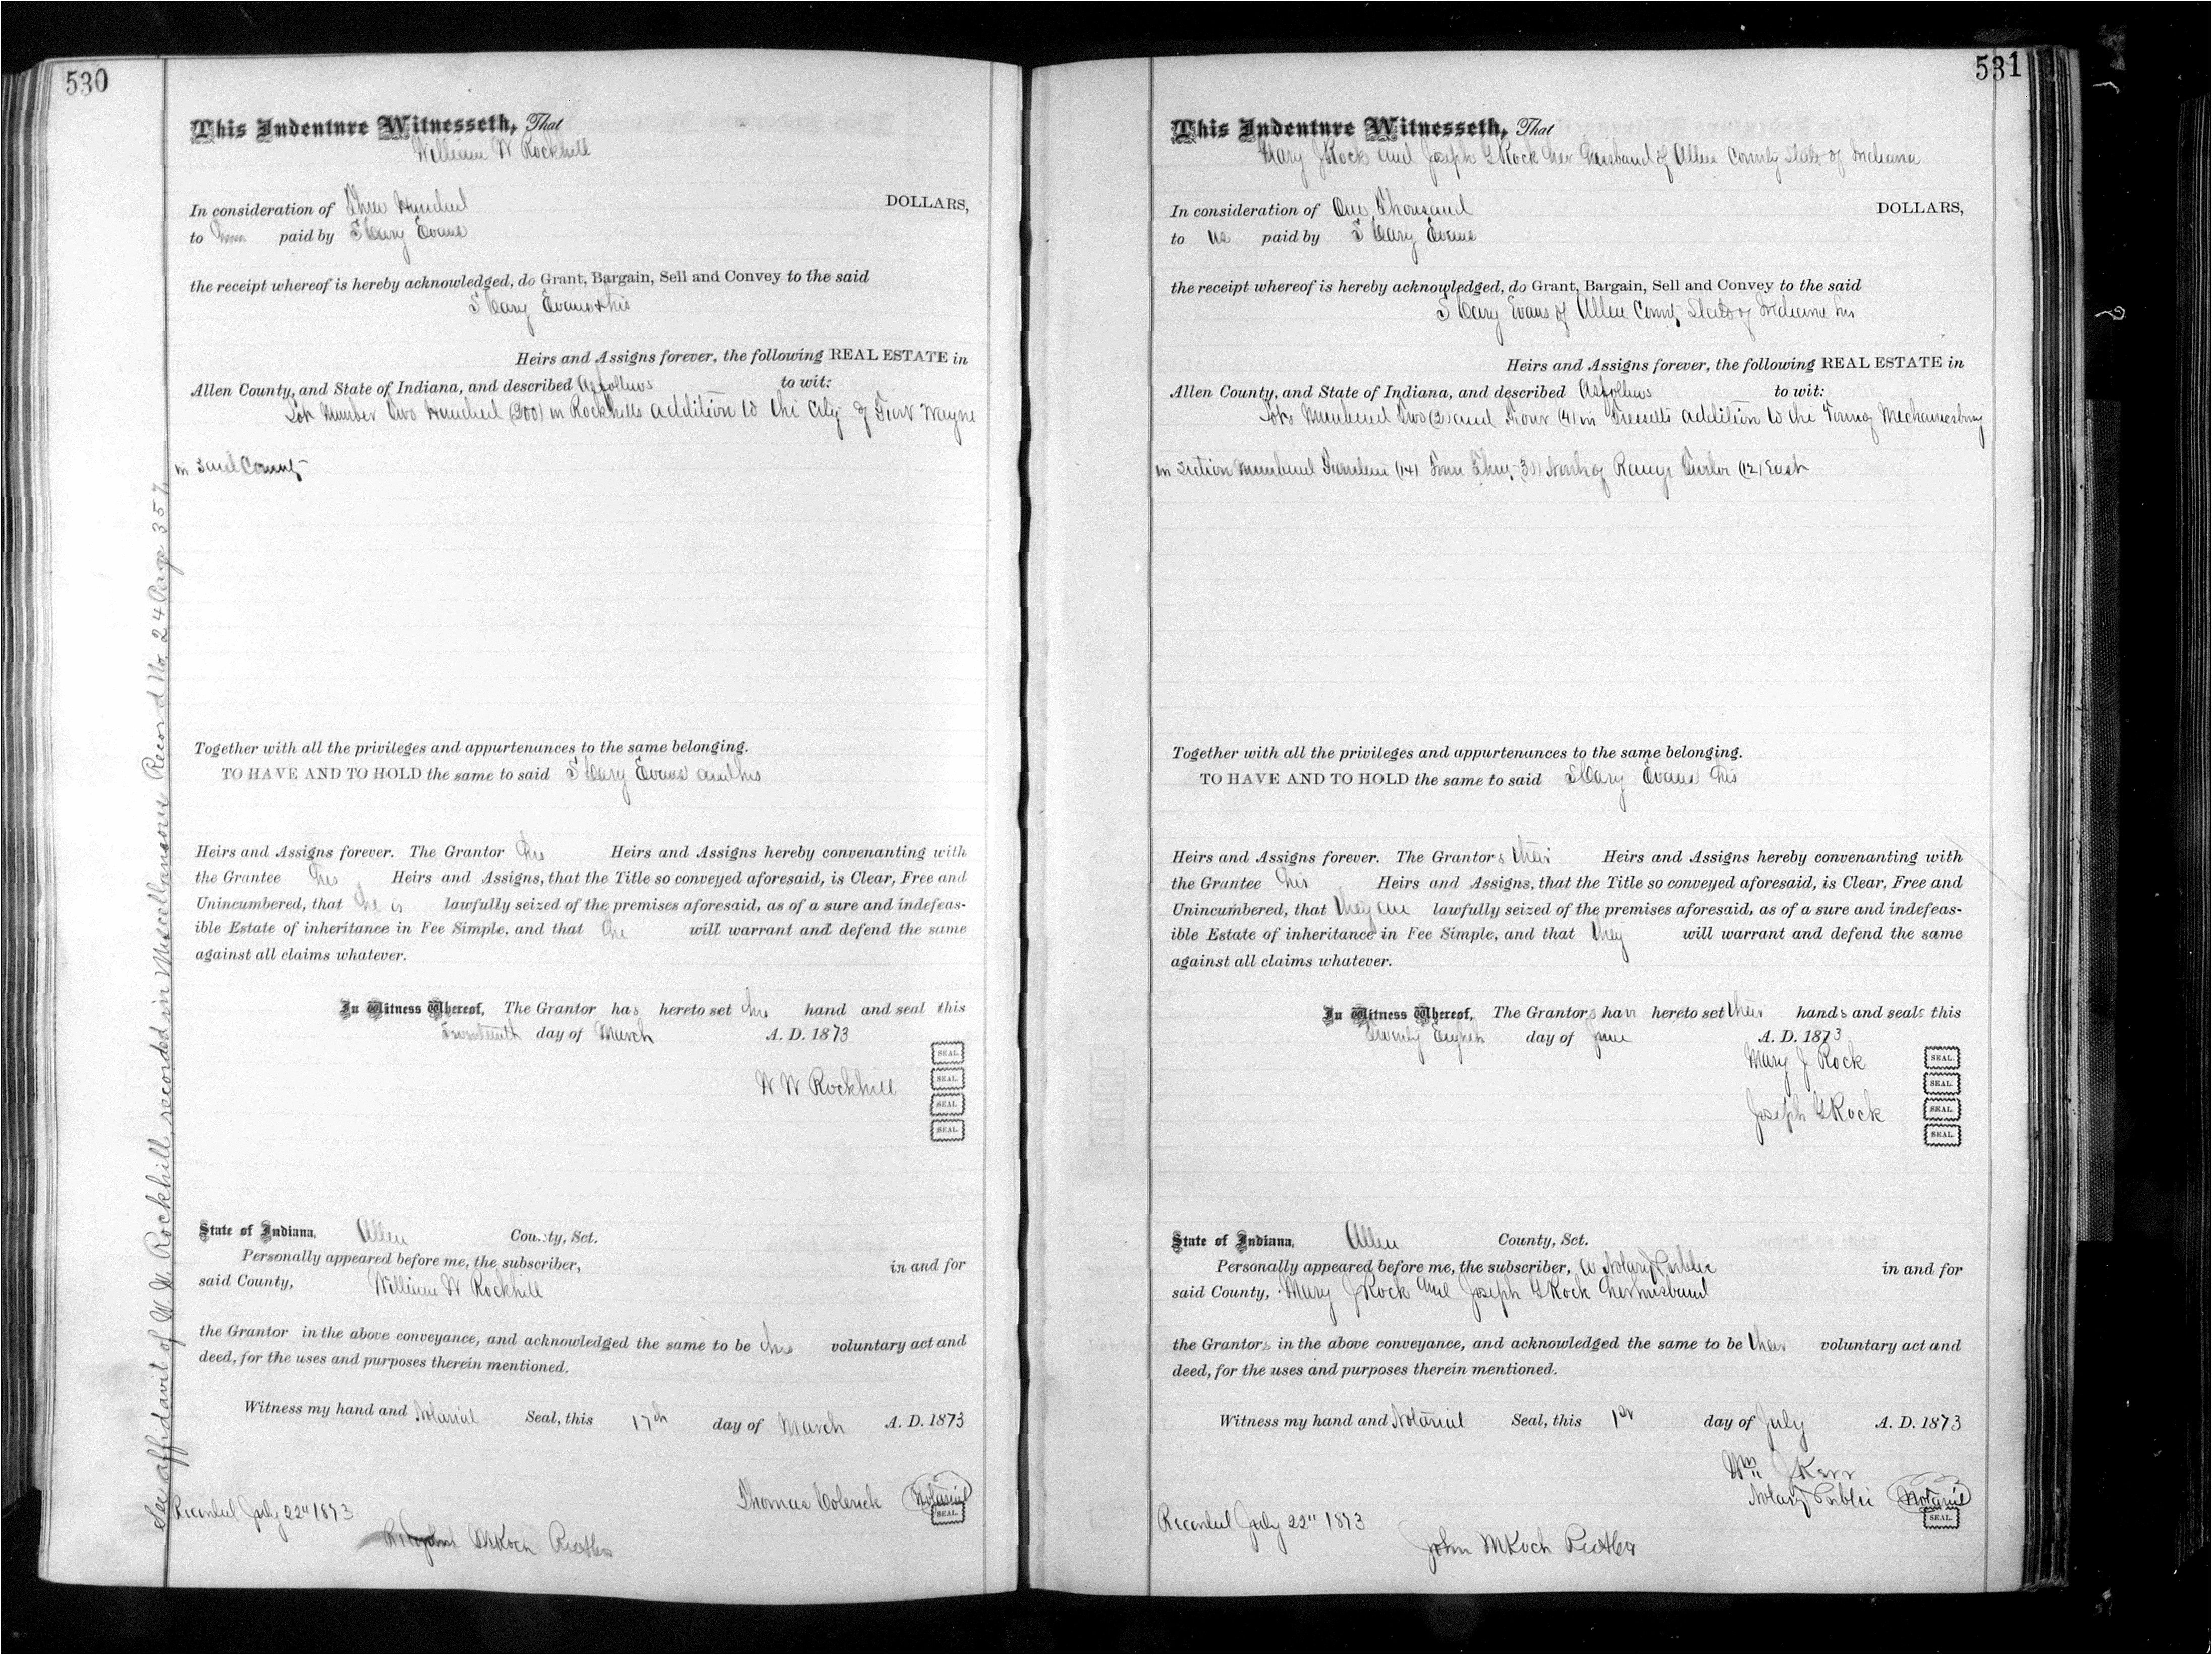 530
This Indenture Witnesseth, That
William W Rockhill
In consideration of Three Hundred DOLLARS,
to him paid by S Cary Evans
the receipt whereof is hereby acknowledged, do Grant, Bargain, Sell and Convey to the said
S Cary Evans & his
Heirs and Assigns forever, the following REAL ESTATE in
Allen County, and State of Indiana, and described As follows to wit:
Lot Number Two Hundred (200) in Rockhills addition to the City of Fort Wayne
in said County
Together with all the privileges and appurtenances to the same belonging.
TO HAVE AND TO HOLD the same to said S Cary Evans and his
Heirs and Assigns forever. The Grantor his Heirs and Assigns hereby convenanting with
the Grantee his Heirs and Assigns, that the Title so conveyed aforesaid, is Clear, Free and
Unincumbered, that he is lawfully seized of the premises aforesaid, as of a sure and indefeas-
ible Estate of inheritance in Fee Simple, and that he will warrant and defend the same
against all claims whatever.
In Witness Whereof, The Grantor has hereto set his hand and seal this
day of March A. D. 1873
SEAL
W W Rockhill SEAL
SEAL
SEAL
State of Indiana, Allen County, Sct.
Personally appeared before me, the subscriber, in and for
said County, William W Rockhill
the Grantor in the above conveyance, and acknowledged the same to be his voluntary act and
deed, for the uses and purposes therein mentioned.
Witness my hand and Notarial Seal, this 17th day of March A. D. 1873
Thomas Colerick Notarial SEAL
Recorded July 22" 1873
M Koch
See affidavit of W. W. Rockhill, recorded in Miscellaneous Record No. 24 Page 357
531
This Indenture Witnesseth, That
Mary J Rock and Joseph G Rock her husband of Allen County State of Indiana
In consideration of One Thousand DOLLARS,
to us paid by S Cary Evans
the receipt whereof is hereby acknowledged, do Grant, Bargain, Sell and Convey to the said
S Cary Evans of Allen County State of Indiana his
Heirs and Assigns forever, the following REAL ESTATE in
Allen County, and State of Indiana, and described As follows to wit:
Lots Numbered Two (2) and Four (4) in addition to the Town of Mechanicsburg
in Section Numbered Fourteen (14) Town Thirty (30) North of Range Twelve (12) East
Together with all the privileges and appurtenances to the same belonging.
TO HAVE AND TO HOLD the same to said S Cary Evans his
Heirs and Assigns forever. The Grantors their Heirs and Assigns hereby convenanting with
the Grantee his Heirs and Assigns, that the Title so conveyed aforesaid, is Clear, Free and
Unincumbered, that they are lawfully seized of the premises aforesaid, as of a sure and indefeas-
ible Estate of inheritance in Fee Simple, and that they will warrant and defend the same
against all claims whatever.
In Witness Whereof, The Grantors have hereto set their hands and seals this
Twenty Eighth day of June A. D. 1873
Mary J Rock SEAL
SEAL
Joseph G Rock SEAL
SEAL
State of Indiana, Allen County, Sct.
Personally appeared before me, the subscriber, a Notary Public in and for
said County, Mary J Rock and Joseph G Rock her husband
the Grantors in the above conveyance, and acknowledged the same to be their voluntary act and
deed, for the uses and purposes therein mentioned.
Witness my hand and Notarial Seal, this 1st day of July A. D. 1873
Wm J Kerr
Notary Public Notarial SEAL
Recorded July 22" 1873
John M Koch